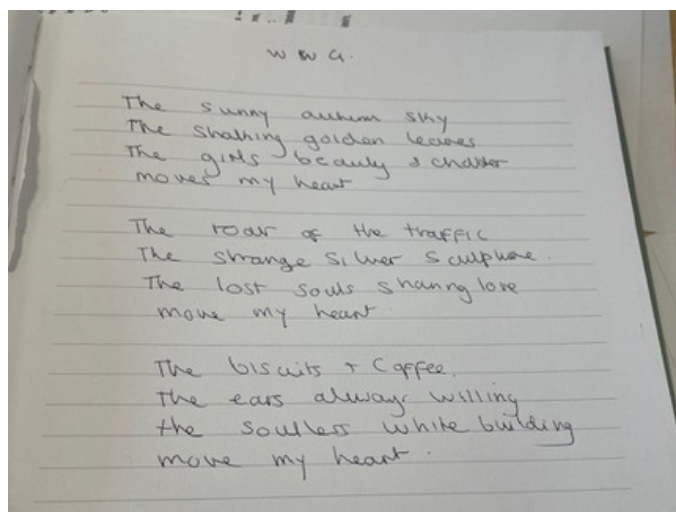 W W G.
The sunny autumn sky
The shaking golden leaves
The girls beauty & chatter
moves my heart
The roar of the traffic
The strange silver sculpture.
The lost souls sharing love
move my heart
The biscuits + coffee.
The ears always willing
the soulless white building
move my heart.